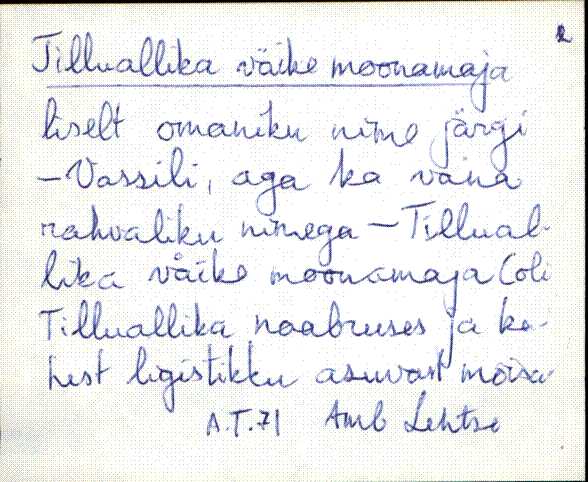 2
Tilluallika väike moonamaja
liselt omaniku nime järgi
– Vassili, aga ka vana
rahvaliku nimega – Tillual-
lika väike moonamaja (oli
Tilluallika naabruses ja ka-
hest ligistikku asuvast mõisa
A.T. 71 Amb Lehtse